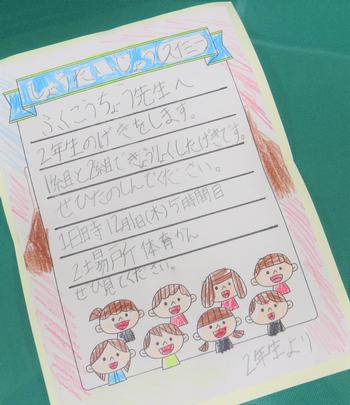 しょうたいじょう(スた二つ
ふくこうちょう先生へ
2年生のげきをします。
1組と2組できょうりょくしたげきです。
ぜひたのしんでください。
1日時 12月1日(木)5時間目
2場所 体育かん
ぜひ見てください。
2年生より